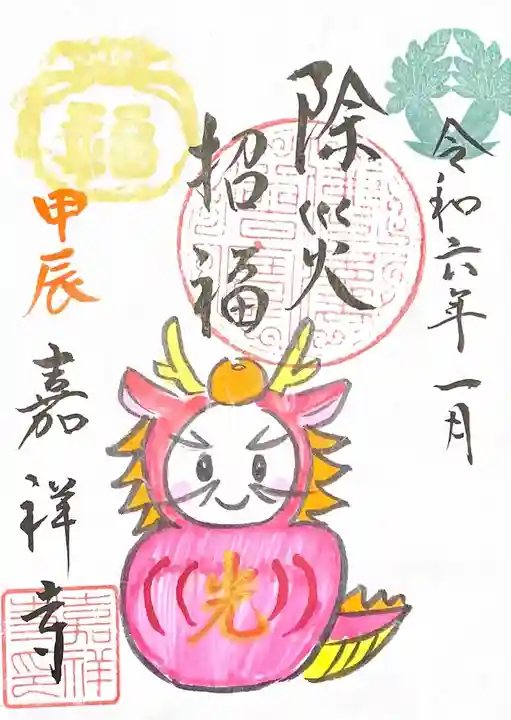 令和六年一月
除災
招福
福
甲辰
嘉祥寺
光
嘉祥
寺印